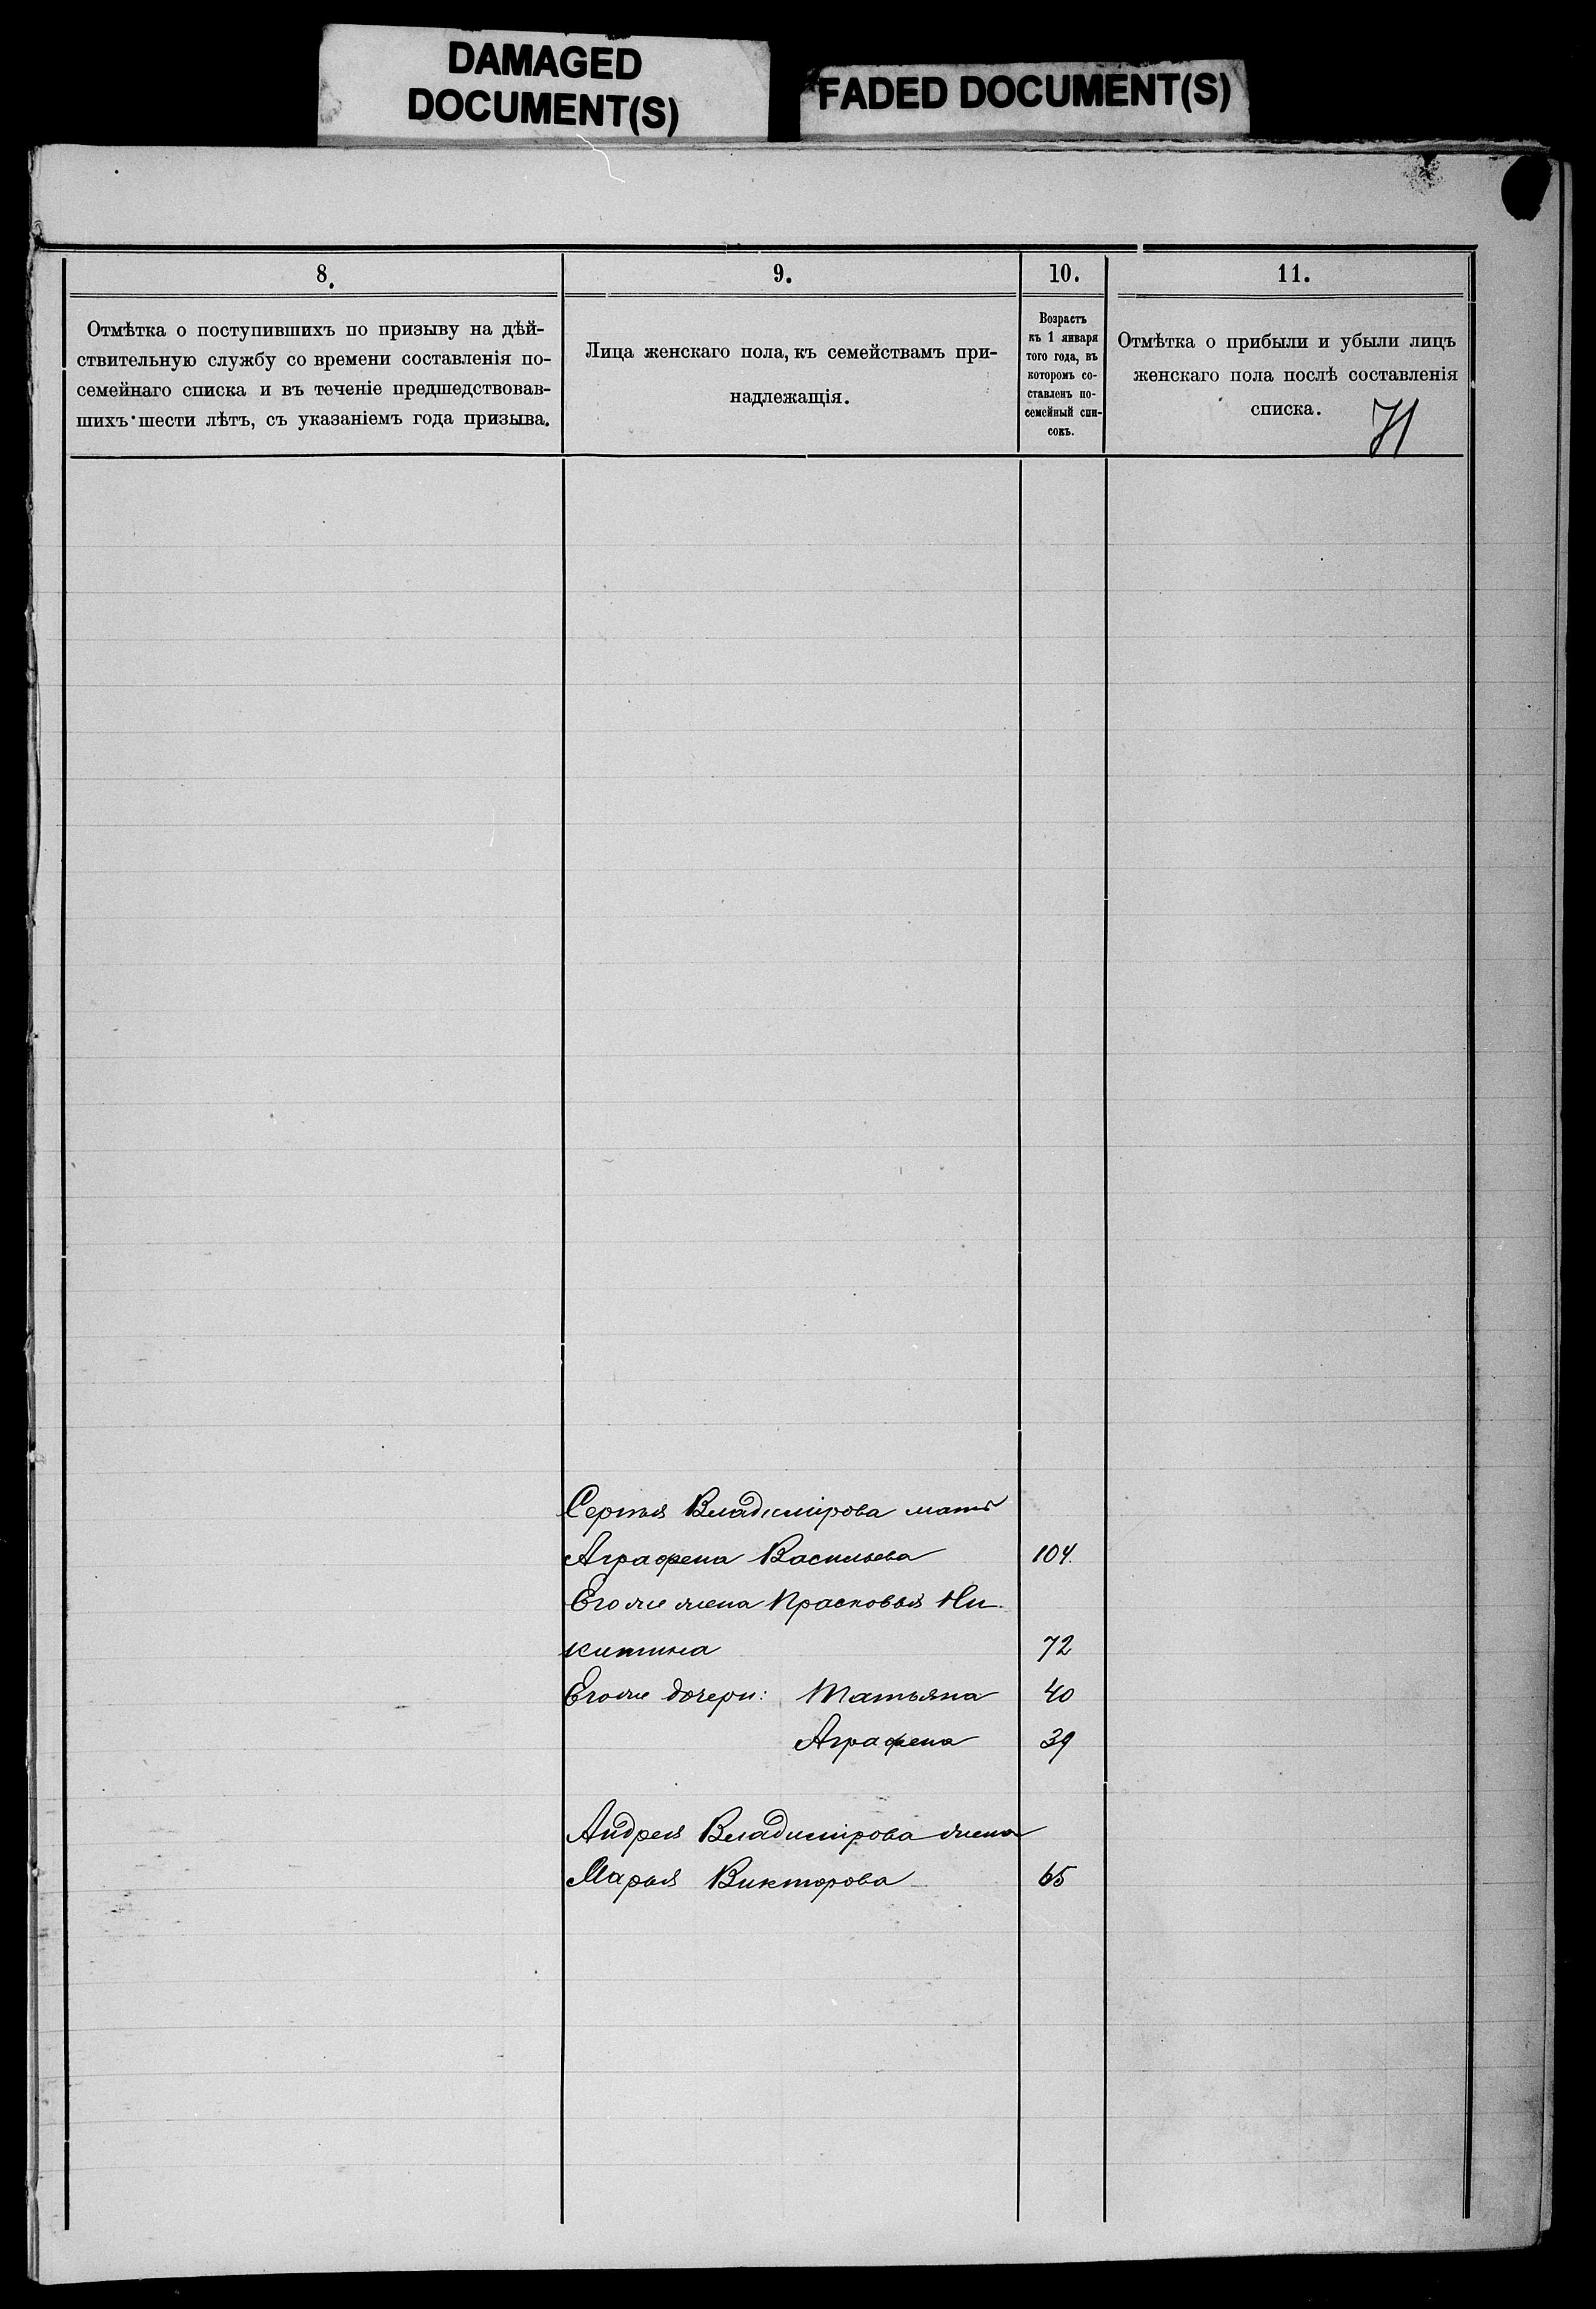 DAMAGED
DOCUMENT(S)
FADED DOCUMENT(S)
8.
Отмѣтка о поступившихъ по призыву на дѣй-
ствительную службу со времени составленія по-
семейнаго списка и въ теченіе предшедствовав-
шихъ шести лѣтъ, съ указаніемъ года призыва.
9.
Лица женскаго пола, къ семействамъ при-
надлежащія.
10.
Возрастъ
къ 1 января
того года, въ
которомъ со-
ставленъ по-
семейный спи-
сокъ.
11.
Отмѣтка о прибыли и убыли лицъ
женскаго пола послѣ составленія
списка.
71
Сергѣя Владимірова мать
Аграфена Васильева 104.
Его же жена Прасковья Ни-
китина 72
Его же дочери: Татьяна 40
Аграфена 39
Андрея Владимірова жена
Марья Викторова 65